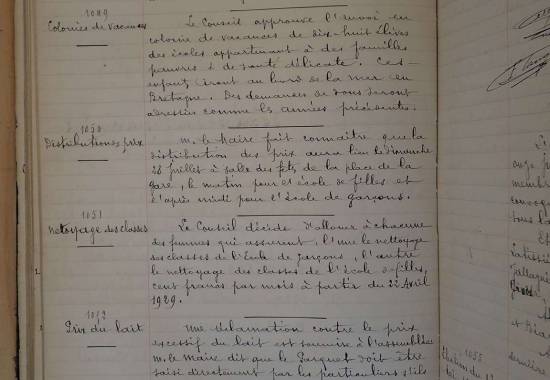 1049
Colonies de vacances
Le Conseil approuve l'envoi en
colonie de vacances de dix-huit élèves
des écoles appartenant à des familles
pauvres & de santé délicate. Ces
enfants iront au bord de la mer en
Bretagne. Des demandes de fonds seront
adressées comme les années précédentes.
1050
Distributions de prix
M. le Maire fait connaître que la
distribution des prix aura lieu le dimanche
28 juillet à salle des fêtes de la place de la
Gare, le matin pour l'école de filles et
l'après midi pour l'école de garçons.
1051
Nettoyage des classes
Le Conseil décide d'allouer à chacune
des femmes qui assurent, l'une le nettoyage
des classes de l'École de garçons, l'autre
le nettoyage des classes de l'école de filles,
cent francs par mois à partir du 22 Avril
1929.
1052
Prix du lait
Une réclamation contre le prix
excessif du lait est soumise à l'assemblée
M. le Maire dit que le Parquet doit être
saisi directement par les particuliers s'ils